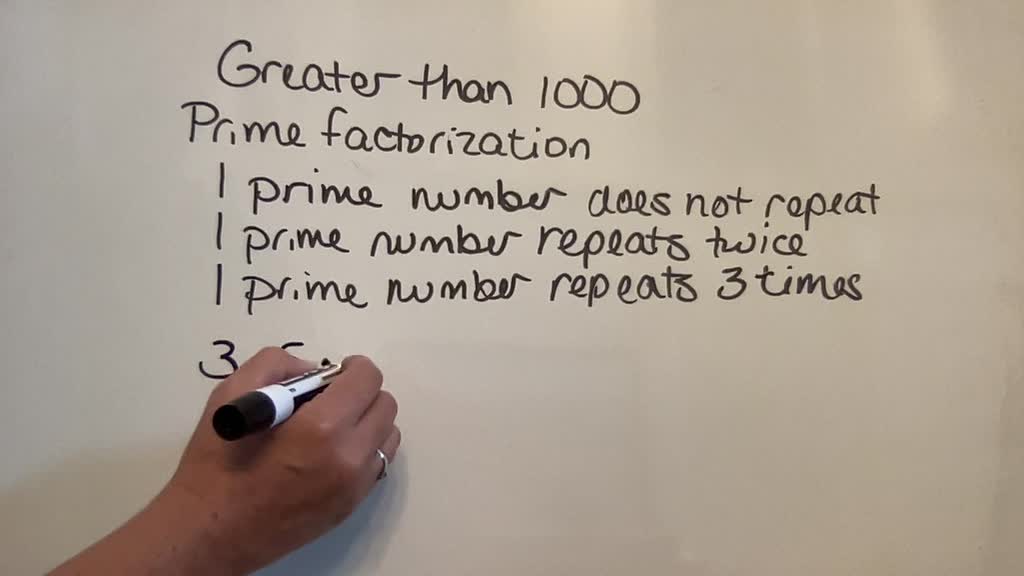 Greater than 1000
Prime factorization
1 prime number does not repeat
1 prime number repeats twice
1 prime number repeats 3 times
3